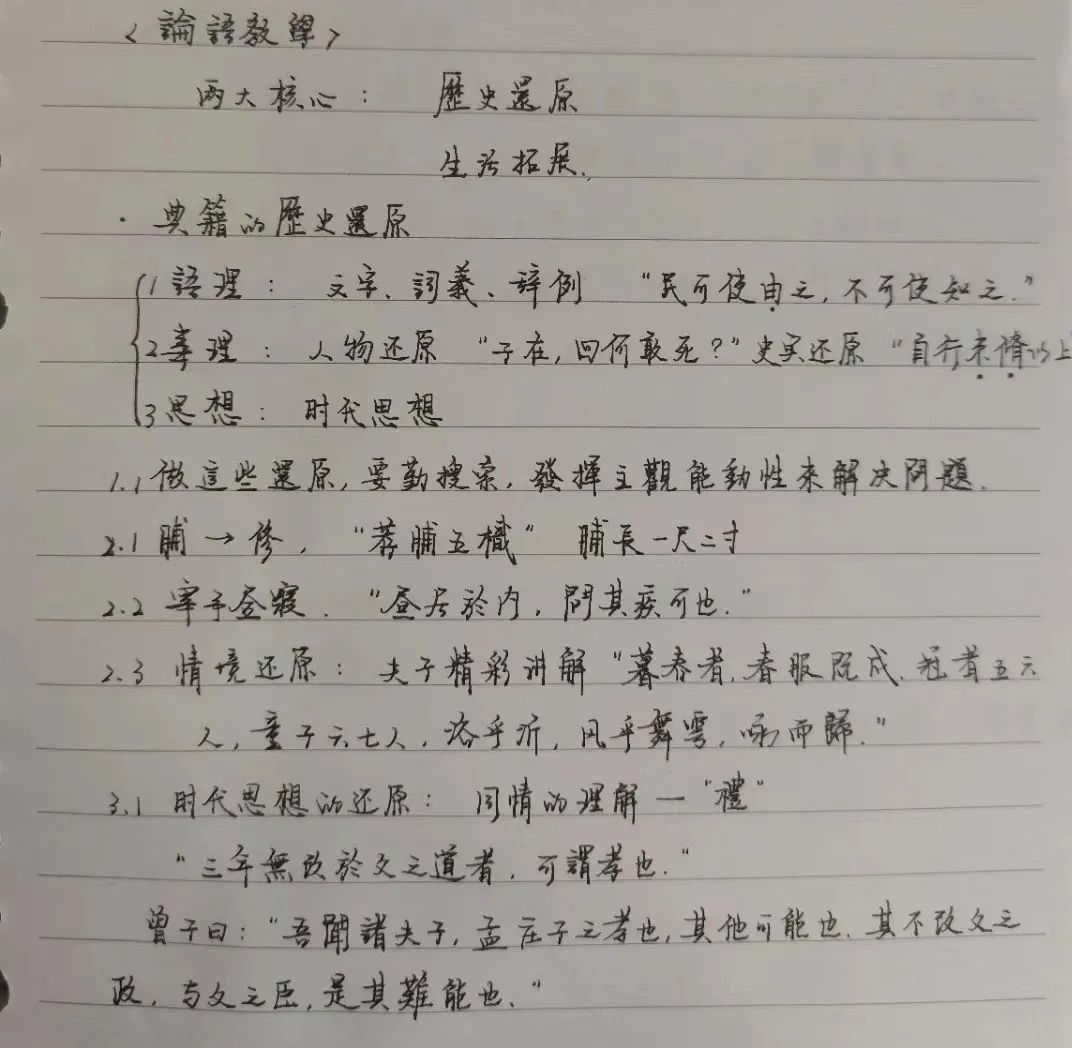 〈論語教學〉
两大核心： 歷史還原
生活拓展.
· 典籍的歷史還原
1 語理： 文字、詞義、辞例 “民可使由之, 不可使知之.”
2 事理： 人物还原 “子在, 回何敢死？” 史实还原 “自行束脩以上
3 思想： 时代思想
1.1 做這些還原, 要勤搜索, 發揮主觀能動性来解决問題.
2.1 脯→脩, “荐脯五樴” 脯長一尺二寸
2.2 宰予昼寢. “昼居於内, 問其疾可也.”
2.3 情境还原： 夫子精彩讲解 “暮春者, 春服既成, 冠者五六
人, 童子六七人, 浴乎沂, 风乎舞雩, 咏而歸.”
3.1 时代思想的还原： 同情的理解 — “禮”
“三年無改於父之道者, 可謂孝也.”
曾子曰：“吾聞諸夫子, 孟庄子之孝也, 其他可能也. 其不改父之
政, 与父之臣, 是其難能也.”